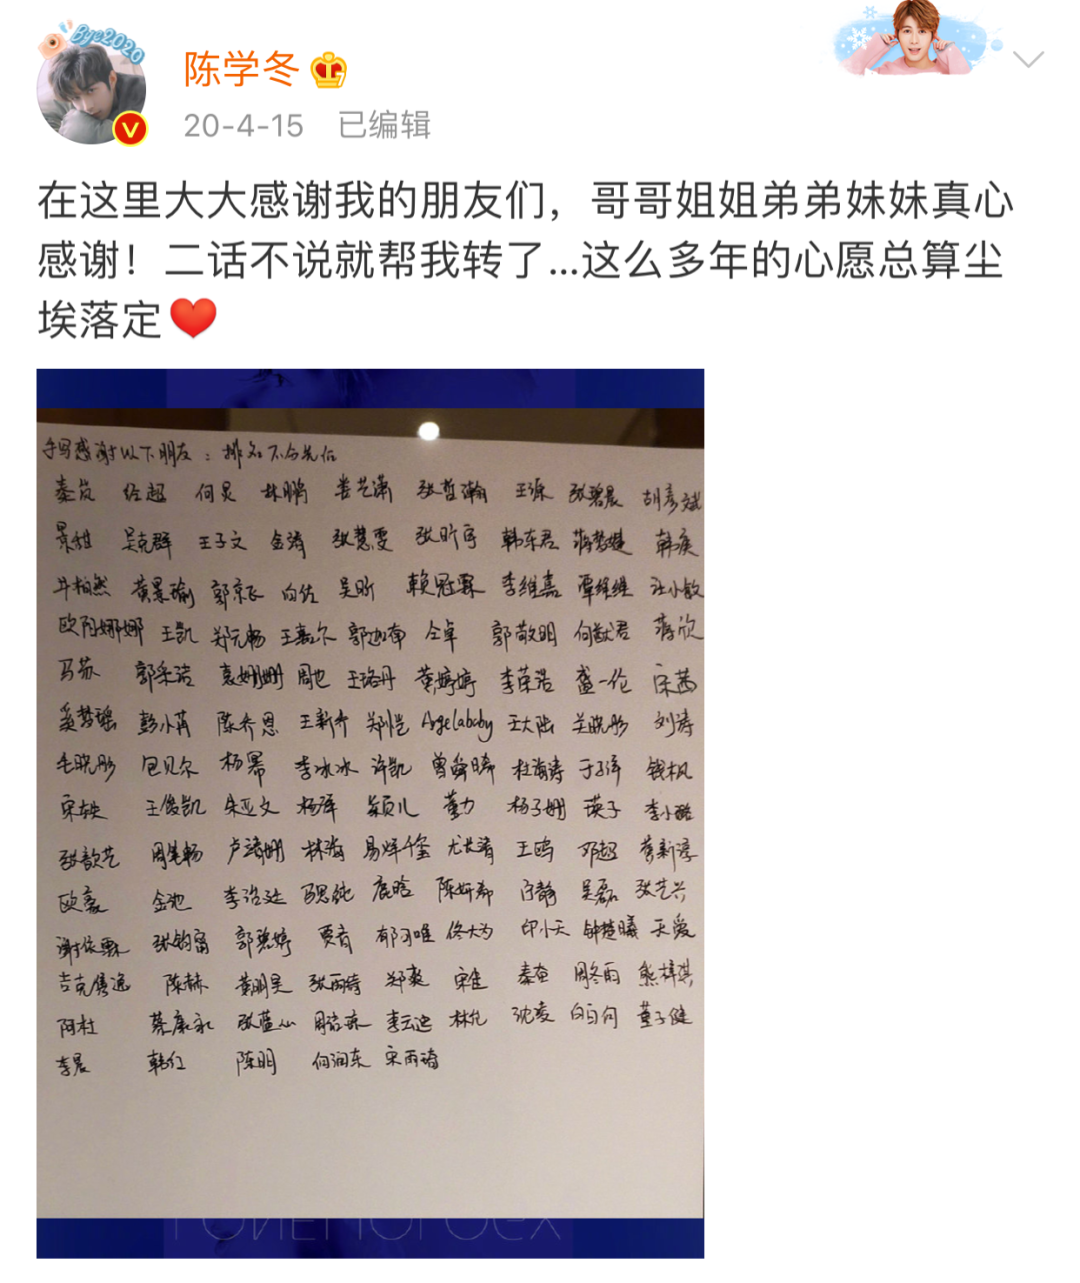 Bye2020
陈学冬
20-4-15 已编辑
在这里大大感谢我的朋友们，哥哥姐姐弟弟妹妹真心
感谢！二话不说就帮我转了...这么多年的心愿总算尘
埃落定
手写感谢以下朋友：排名不分先后
秦岚 经超 何炅 林鹏 姜艺潇 张哲瀚 王源 张碧晨 胡彦斌
景甜 吴克群 王子文 金涛 张慧雯 张昕宇 韩东君 蒋梦婕 韩庚
牛柏然 黄景瑜 郭京飞 向佐 吴昕 赖冠霖 李维嘉 覃继维 汪小敏
欧阳娜娜 王凯 郑元畅 王嘉尔 郭迦南 仝卓 郭敬明 何猷君 蒋欣
马苏 郭采洁 袁姗姗 周也 王珞丹 黄婷婷 李荣浩 盛一伦 宋茜
奚梦瑶 彭小苒 陈乔恩 王新乔 郑恺 Angelababy 王大陆 关晓彤 刘涛
毛晓彤 包贝尔 杨幂 李冰冰 许凯 曾舜晞 杜海涛 于子洋 钱枫
宋轶 王俊凯 朱亚文 杨洋 颖儿 董力 杨子姗 瑛子 李小璐
张歆艺 周笔畅 卢靖姗 林海 易烊千玺 尤长靖 王鸥 邓超 蔡新淳
欧豪 金池 李治廷 马思纯 鹿晗 陈妍希 白静 吴磊 张艺兴
谢依霖 张钧甯 郭碧婷 贾青 郁可唯 佟大为 印小天 钟楚曦 天爱
吉克隽逸 陈赫 黄明昊 张雨绮 郑爽 宋佳 秦奋 周冬雨 熊梓淇
阿杜 蔡康永 张蓝心 周洁琼 李云迪 林允 沈凌 白百何 董子健
李晨 韩红 陈明 何润东 宋雨琦